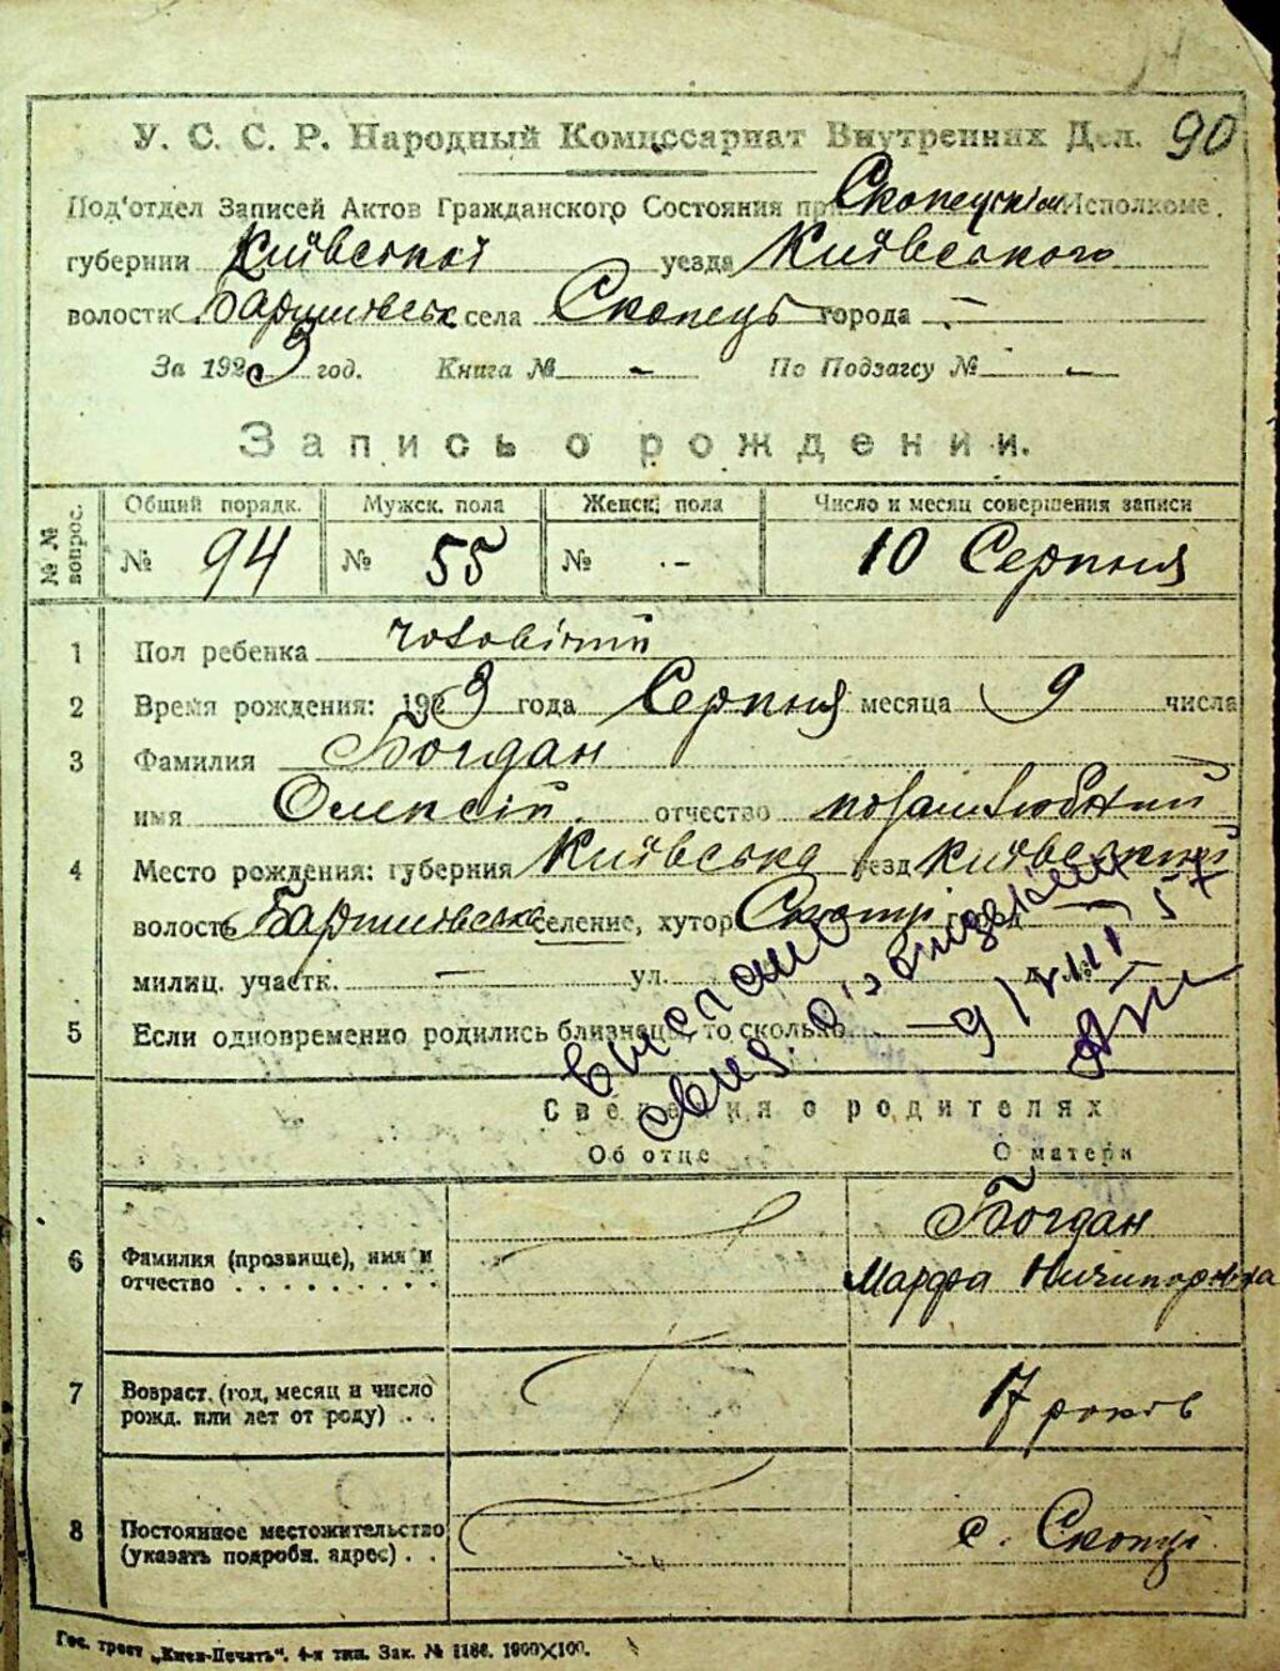 У. С. С. Р. Народный Комиссариат Внутренних Дел. 90
Под'отдел Записей Актов Гражданского Состояния при Скопецьким Исполкоме.
губернии Київської уезда Київського
волости Баришевськ села Скопець города -
За 1923 год. Книга № - По Подзагсу № -
Запись о рождении.
№ № вопрос. Общий порядк. Мужск. пола Женск. пола Число и месяц совершения записи
№ 94 № 55 № - 10 Серпня
1 Пол ребенка чоловічий
2 Время рождения: 1923 года Серпня месяца 9 числа
3 Фамилия Богдан
имя Олексій отчество позашлюбний
4 Место рождения: губерния Київська уезд Київський
волость Баришевська селение, хутор Скопці город —
милиц. участк. — ул. д. №
5 Если одновременно родились близнецы, то сколько —
виписано
свид.
9/VIII 57
Сведения о родителях
Об отце О матери
6 Фамилия (прозвище), имя и отчество . . . . . . . . .
Богдан
Марфа Ничипоровна
7 Возраст. (год, месяц и число рожд. или лет от роду) . . .
17 років
8 Постоянное местожительство (указать подробн. адрес) . .
с. Скопці
Гос. трест „Киев-Печать“. 4-я тип. Зак. № 1186. 1900×100.